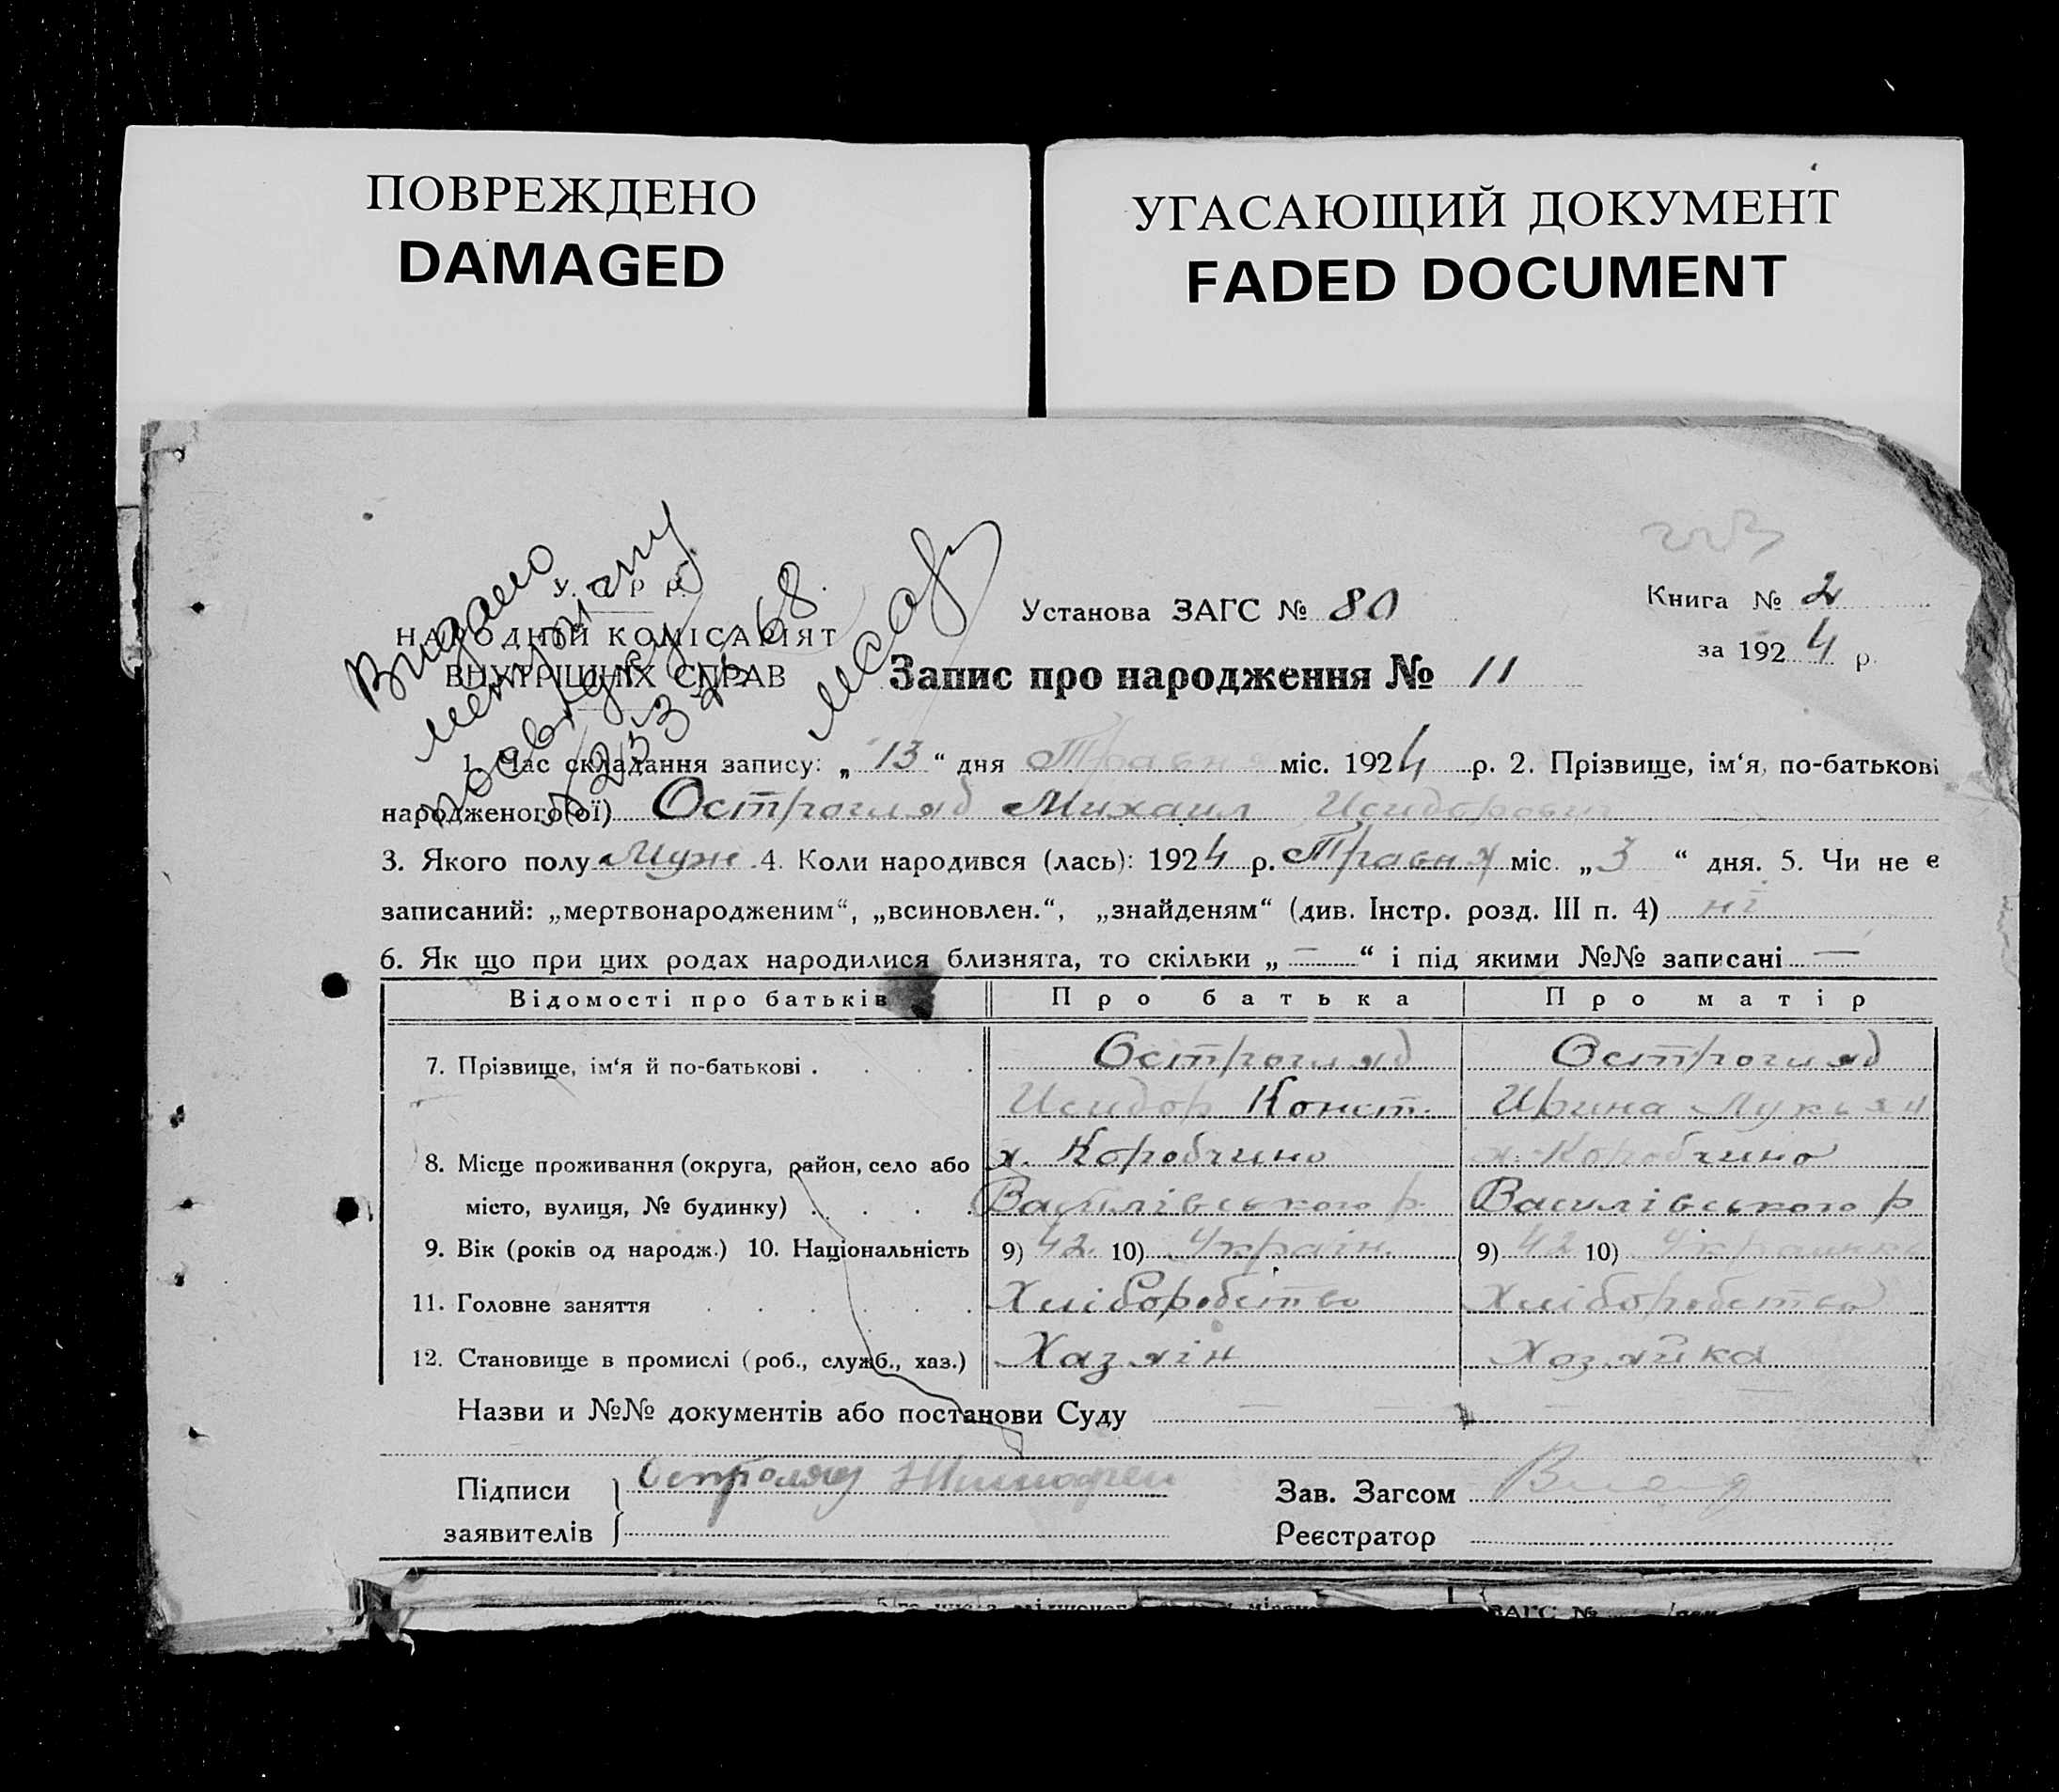 ПОВРЕЖДЕНО
DAMAGED
УГАСАЮЩИЙ ДОКУМЕНТ
FADED DOCUMENT
Видано
метрику
повторну
68.
У. Р. Р.
НАРОДНІЙ КОМІСАРІЯТ
ВНУТРІШНІХ СПРАВ
Установа ЗАГС № 80
Книга № 2
за 1924 р.
Запис про народження № 11
1. Час складання запису: „13“ дня Травня міс. 1924 р. 2. Прізвище, ім‘я, по-батькові
народженого(ої) Остропляд Михаил Исидорович
3. Якого полу Муж. 4. Коли народився (лась): 1924 р. Травня міс. „3“ дня. 5. Чи не є
записаний: „мертвонародженим“, „всиновлен.“, „знайденям“ (див. Інстр. розд. III п. 4) ні
6. Як що при цих родах народилися близнята, то скільки „—“ і під якими №№ записані —
Відомості про батьків Про батька Про матір
7. Прізвище, ім‘я й по-батькові . . . . . Остропляд Остропляд
Исидор Конст. Ирина Лукьян
8. Місце проживання (округа, район, село або х. Коробчино х. Коробчино
місто, вулиця, № будинку) . . . . Василівського р. Василівського р
9. Вік (років од народж.) 10. Національність 9) 42. 10) Україн. 9) 42 10) Українка
11. Головне заняття . . . . . . Хліборобство Хліборобство
12. Становище в промислі (роб., служб., хаз.) Хазяін Хозяйка
Назви и №№ документів або постанови Суду — — —
Підписи
заявителів
Зав. Загсом
Реєстратор
ЗАГС №